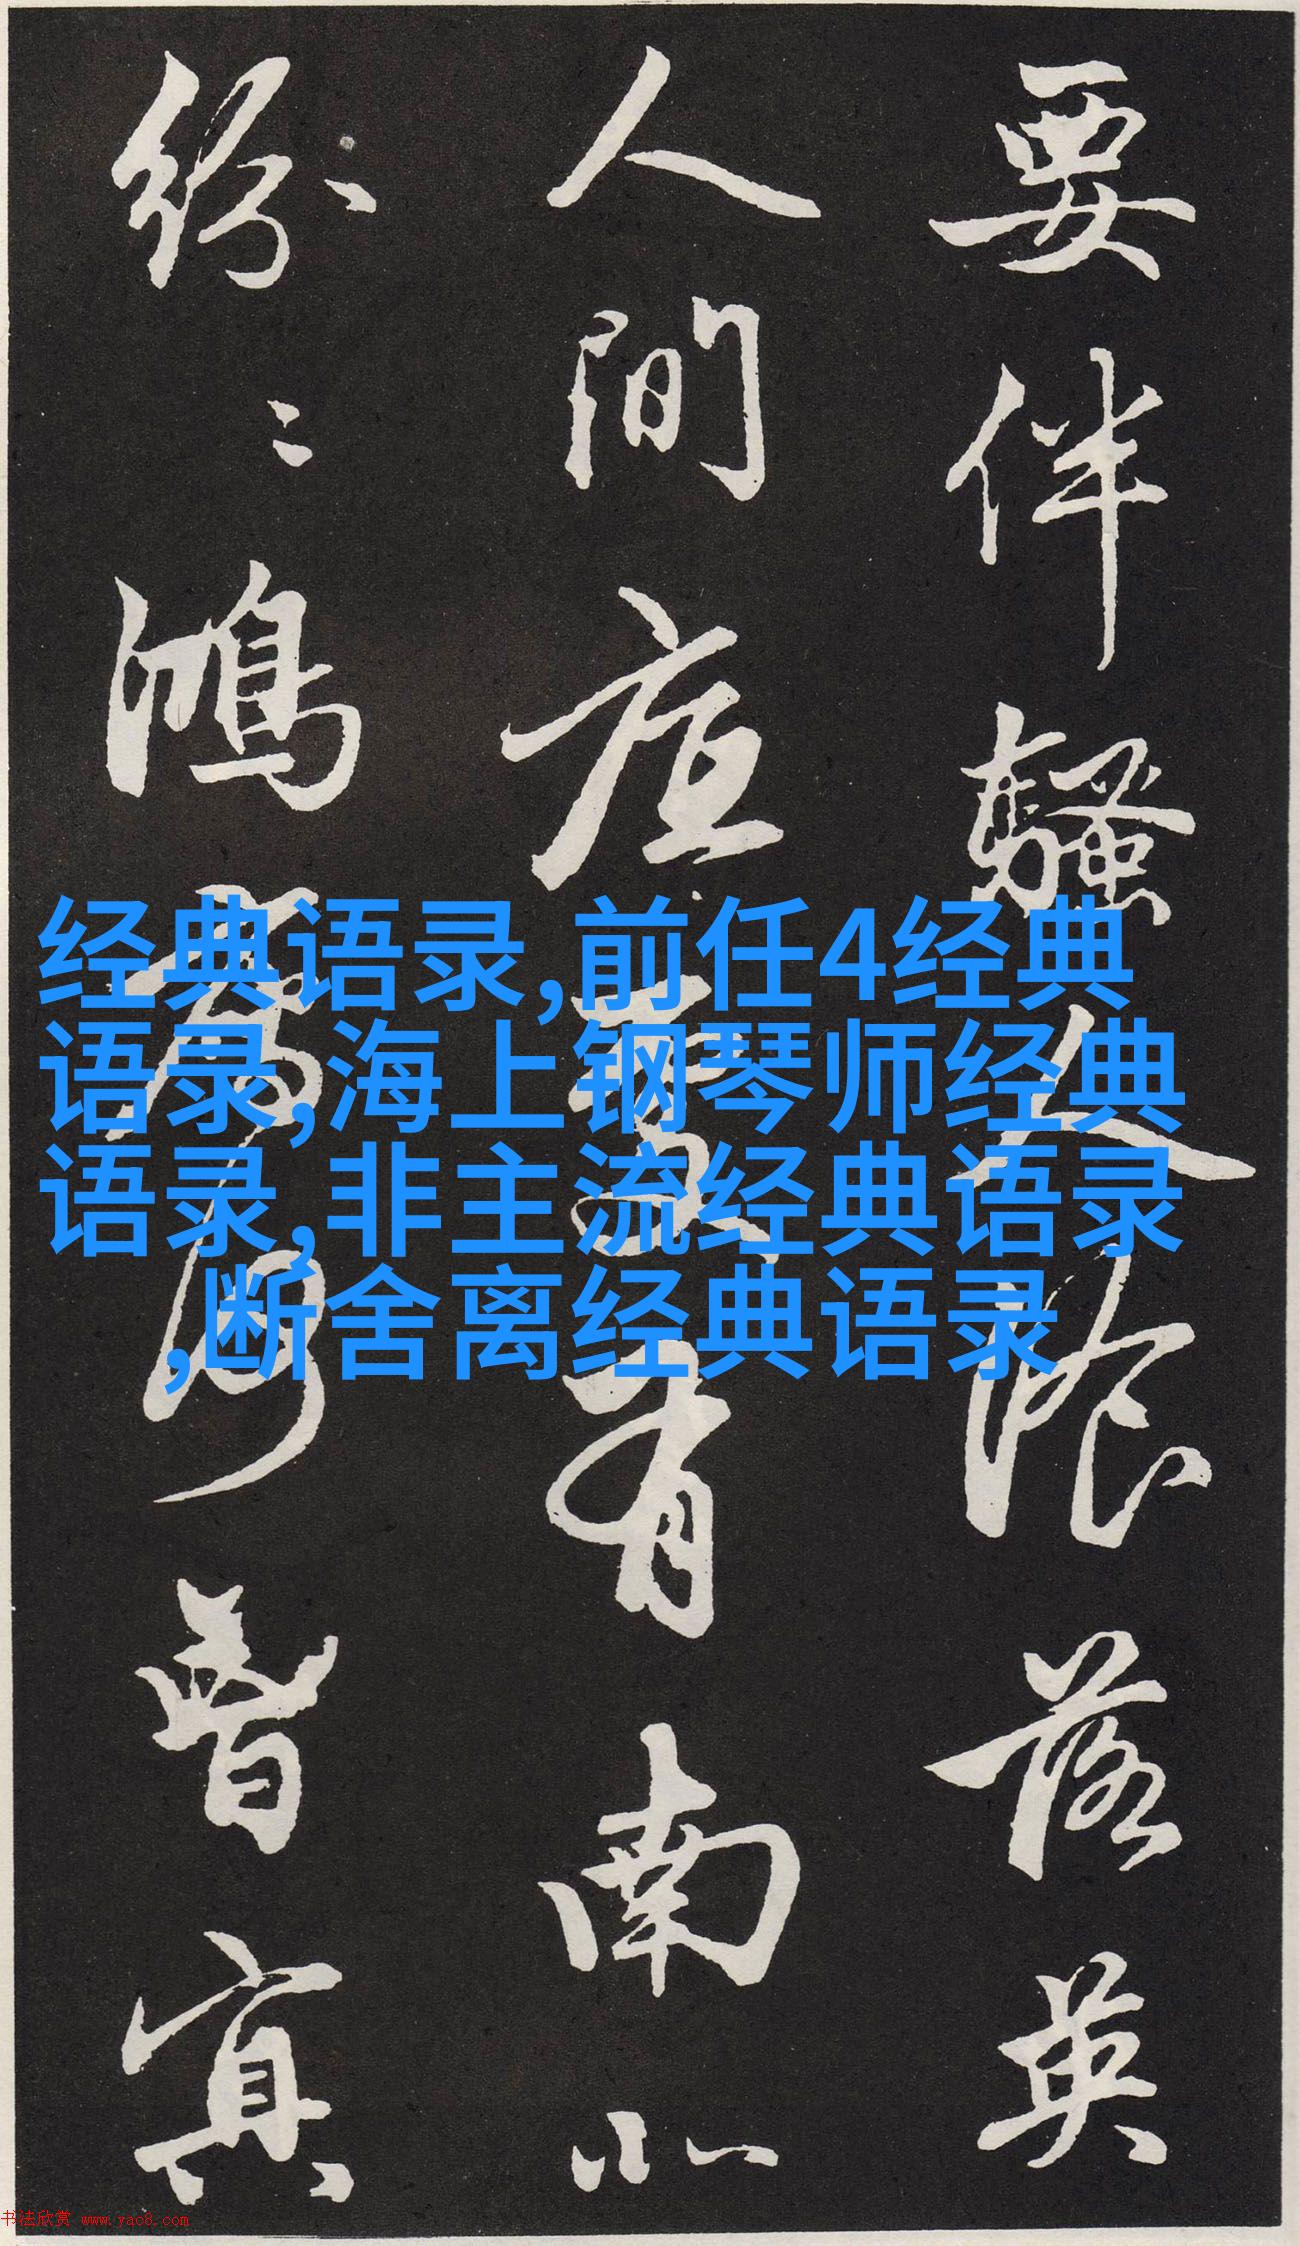 要伴騷人落英
人間底處有南
紛〻鴻雁何曾
经典语录,前任4经典
语录,海上钢琴师经典
语录,非主流经典语录
,断舍离经典语录
书法欣赏 www.yac8.com